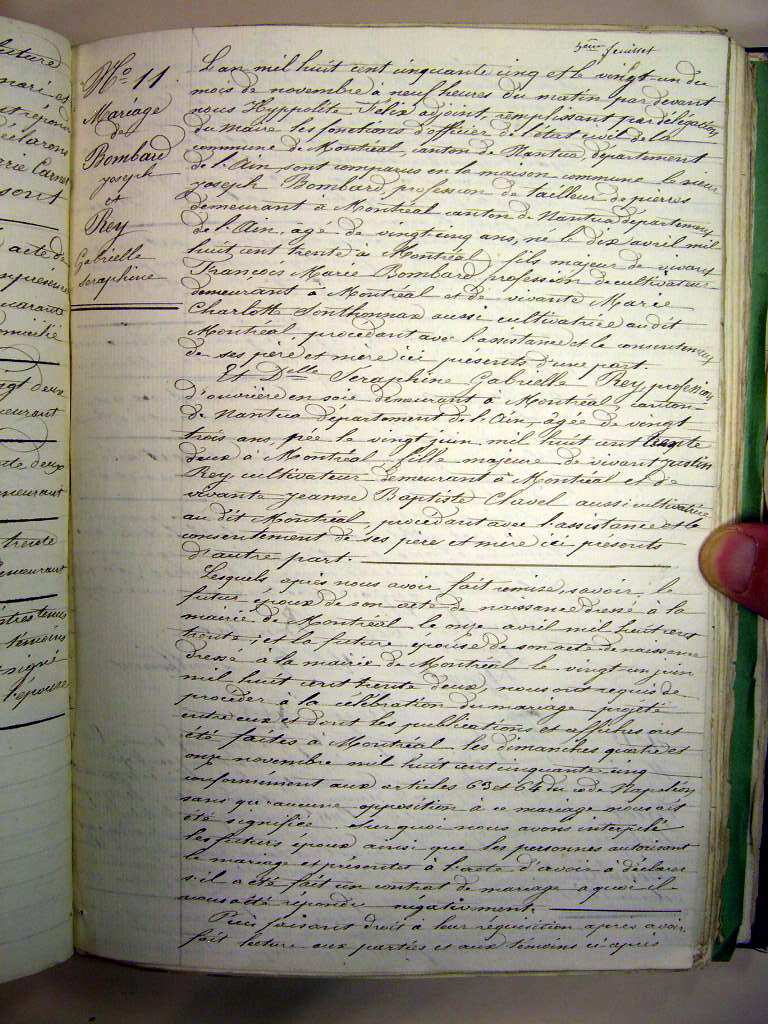 5ème feuillet
No 11.
Mariage
de
Bombard
joseph
et
Rey
Gabrielle
Seraphine
L'an mil huit cent cinquante cinq et le vingt un du
mois de novembre à neuf heures du matin par devant
nous Hyppolite Félix adjoint, remplissant par délégation
du maire les fonctions d'officier de l'état civil de la
commune de Montréal, canton de Nantua, département
de l'Ain, sont comparus en la maison commune le sieur
joseph Bombard, profession de tailleur de pierres
demeurant à Montréal canton de Nantua département
de l'Ain, âgé de vingt cinq ans, né le dix avril mil
huit cent trente à Montréal, fils majeur de vivant
François Marie Bombard profession de cultivateur
demeurant à Montréal et de vivante Marie
Charlotte Sonthonnax aussi cultivatrice au dit
Montréal procédant avec l'assistance et le consentement
de ses père et mère ici presents d'une part.
Et Delle Seraphine Gabrielle Rey, profession
d'ouvrière en soie demeurant à Montréal, canton
de Nantua département de l'Ain, âgée de vingt
trois ans, née le vingt juin mil huit cent trente
deux à Montréal fille majeure de vivant Justin
Rey cultivateur demeurant à Montréal et de
vivante jeanne Baptiste Clavel aussi cultivatrice
au dit Montréal, procédant avec l'assistance et le
consentement de ses père et mère ici présents
d'autre part.
Lesquels après nous avoir fait remise, savoir, le
futur époux de son acte de naissance dressé à la
mairie de Montréal le onze avril mil huit cent
trente; et la future épouse de son acte de naissance
dressé à la mairie de Montréal le vingt un juin
mil huit cent trente deux, nous ont requis de
procéder à la célébration du mariage projeté
entre eux et dont les publications et affiches ont
été faites à Montréal les dimanches quatre et
onze novembre mil huit cent cinquante cinq
conformément aux articles 63 et 64 du code Napoléon
sans qu'aucune opposition à ce mariage nous ait
été signifiée. Sur quoi nous avons interpelé
les futurs époux ainsi que les personnes autorisant
le mariage et présentes à l'acte d'avoir à déclarer
s'il a été fait un contrat de mariage à quoi il
nous a été répondu négativement.
Puis faisant droit à leur réquisition après avoir
fait lecture aux parties et aux témoins ci après